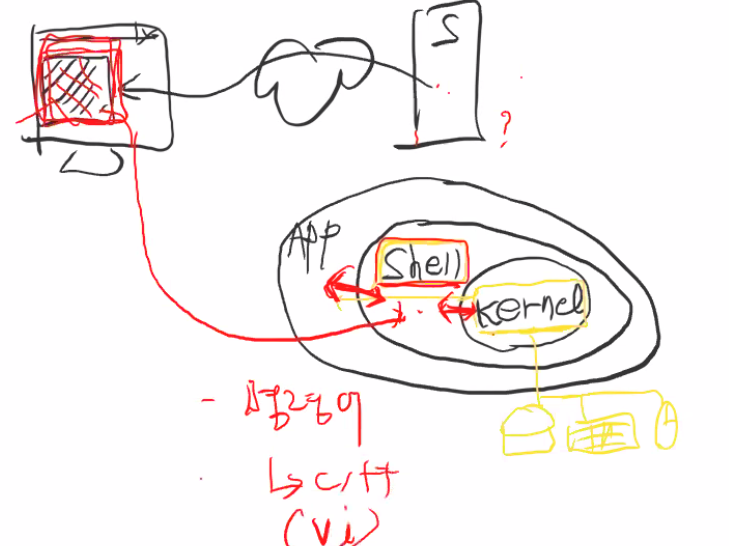 S
?
App
Shell
Kernel
- 명령어
↳ C/++
(vi)